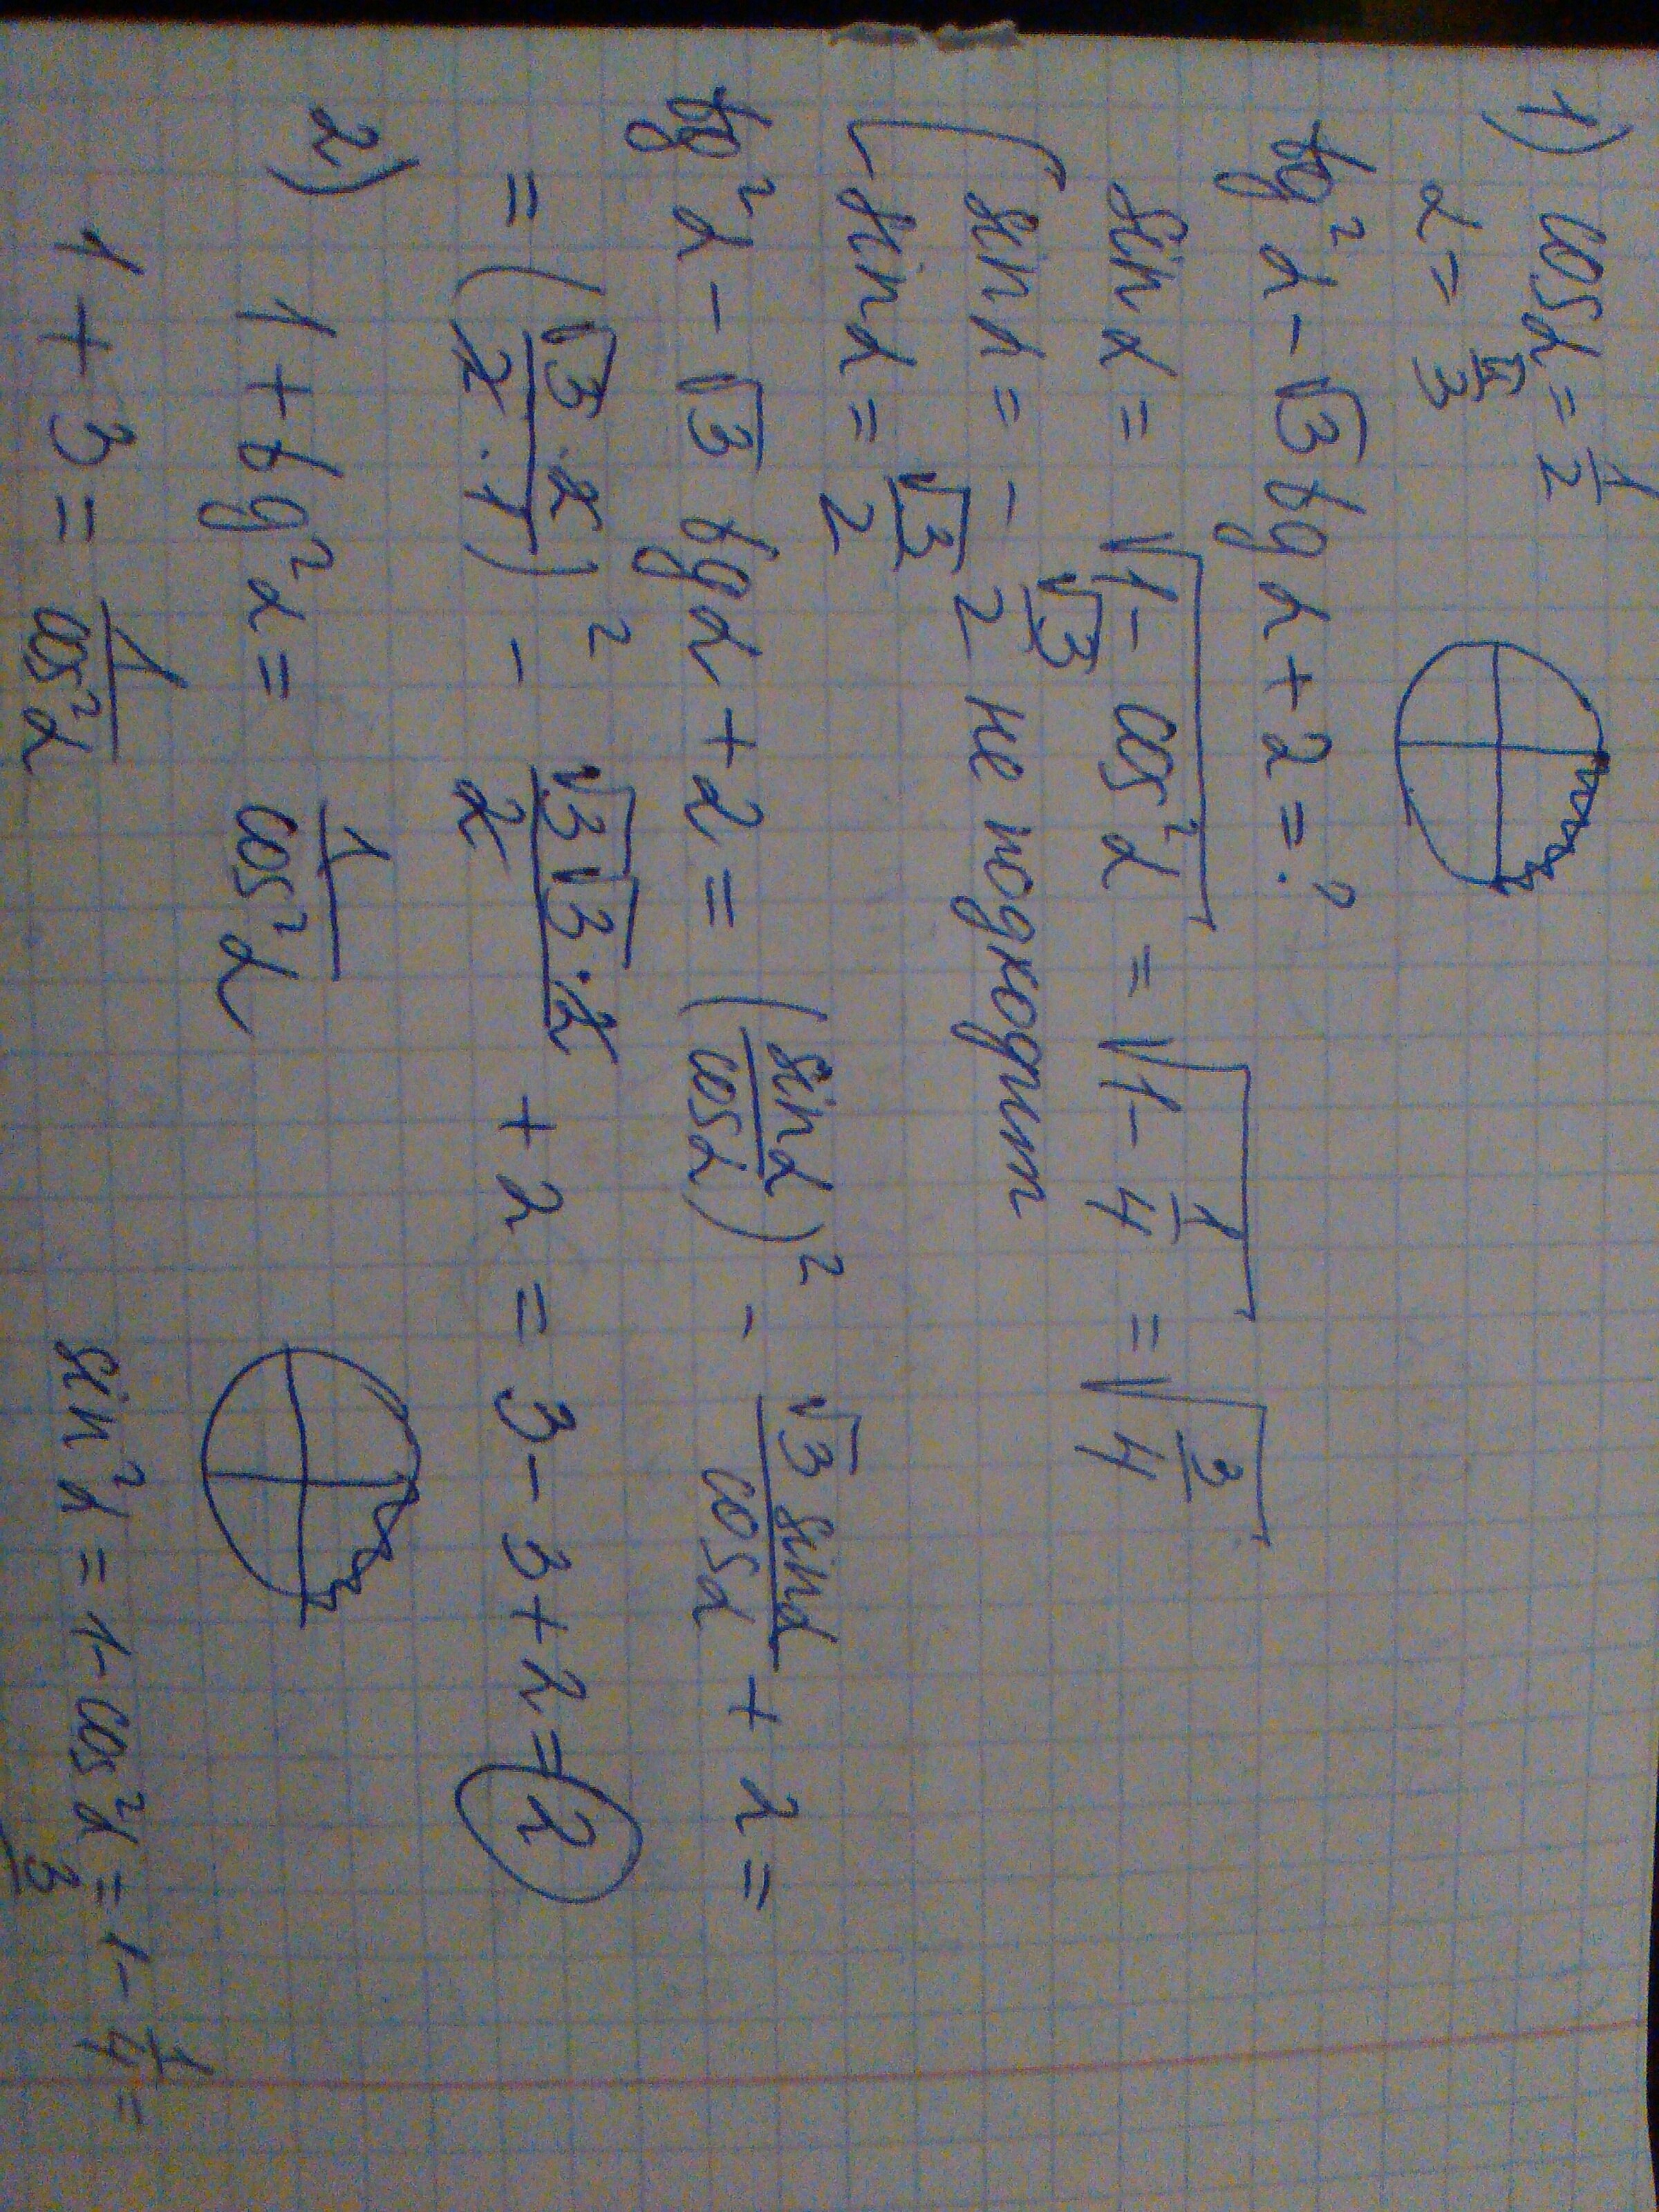 1) cos α = 1/2
α = π/3
tg² α - √3 tg α + 2 = ?
sin α = √(1 - cos² α) = √(1 - 1/4) = √(3/4)
[ sin α = - √3/2 не подходит
sin α = √3/2
tg² α - √3 tg α + 2 = (sin α/cos α)² - √3 sin α/cos α + 2 =
= (√3 · 2/2 · 1)² - √3 √3 · 2/2 + 2 = 3 - 3 + 2 = 2
2) 1 + tg² α = 1/cos² α
1 + 3 = 1/cos² α sin² α = 1 - cos² α = 1 - 1/4 =
3